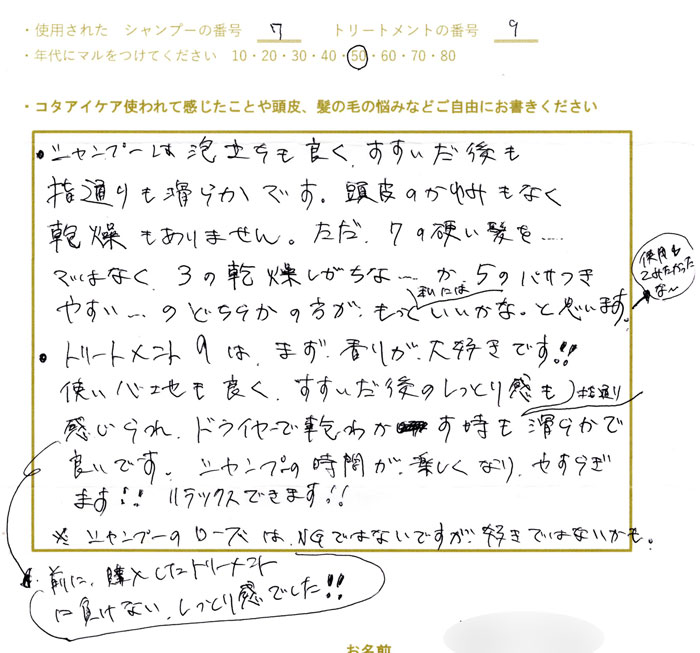 ・使用された シャンプーの番号 7 トリートメントの番号 9
・年代にマルをつけてください 10・20・30・40・50・60・70・80
・コタアイケア使われて感じたことや頭皮、髪の毛の悩みなどご自由にお書きください
・シャンプーは泡立ちも良く、すすいだ後も
指通りも滑らかです。頭皮のかゆみもなく
乾燥もありません。ただ、7の硬い髪を……
ではなく、3の乾燥しがちな…… か、5のパサつき
やすい… のどちらかの方が、もっと私にはいいかな。と思います。
使用してみたかったな〜
・トリートメント9は、まず、香りが、大好きです!!
使い心地も良く、すすいだ後のしっとり感も
感じられ、ドライヤーで乾わかす時も指通り滑らかで
良いです。シャンプーの時間が、楽しくなり、やすらぎ
ます!! リラックスできます!!
※ シャンプーのローズは、NGではないですが、好きではないかも。
前に、購入したトリートメント
に負けない、しっとり感でした!!
お名前